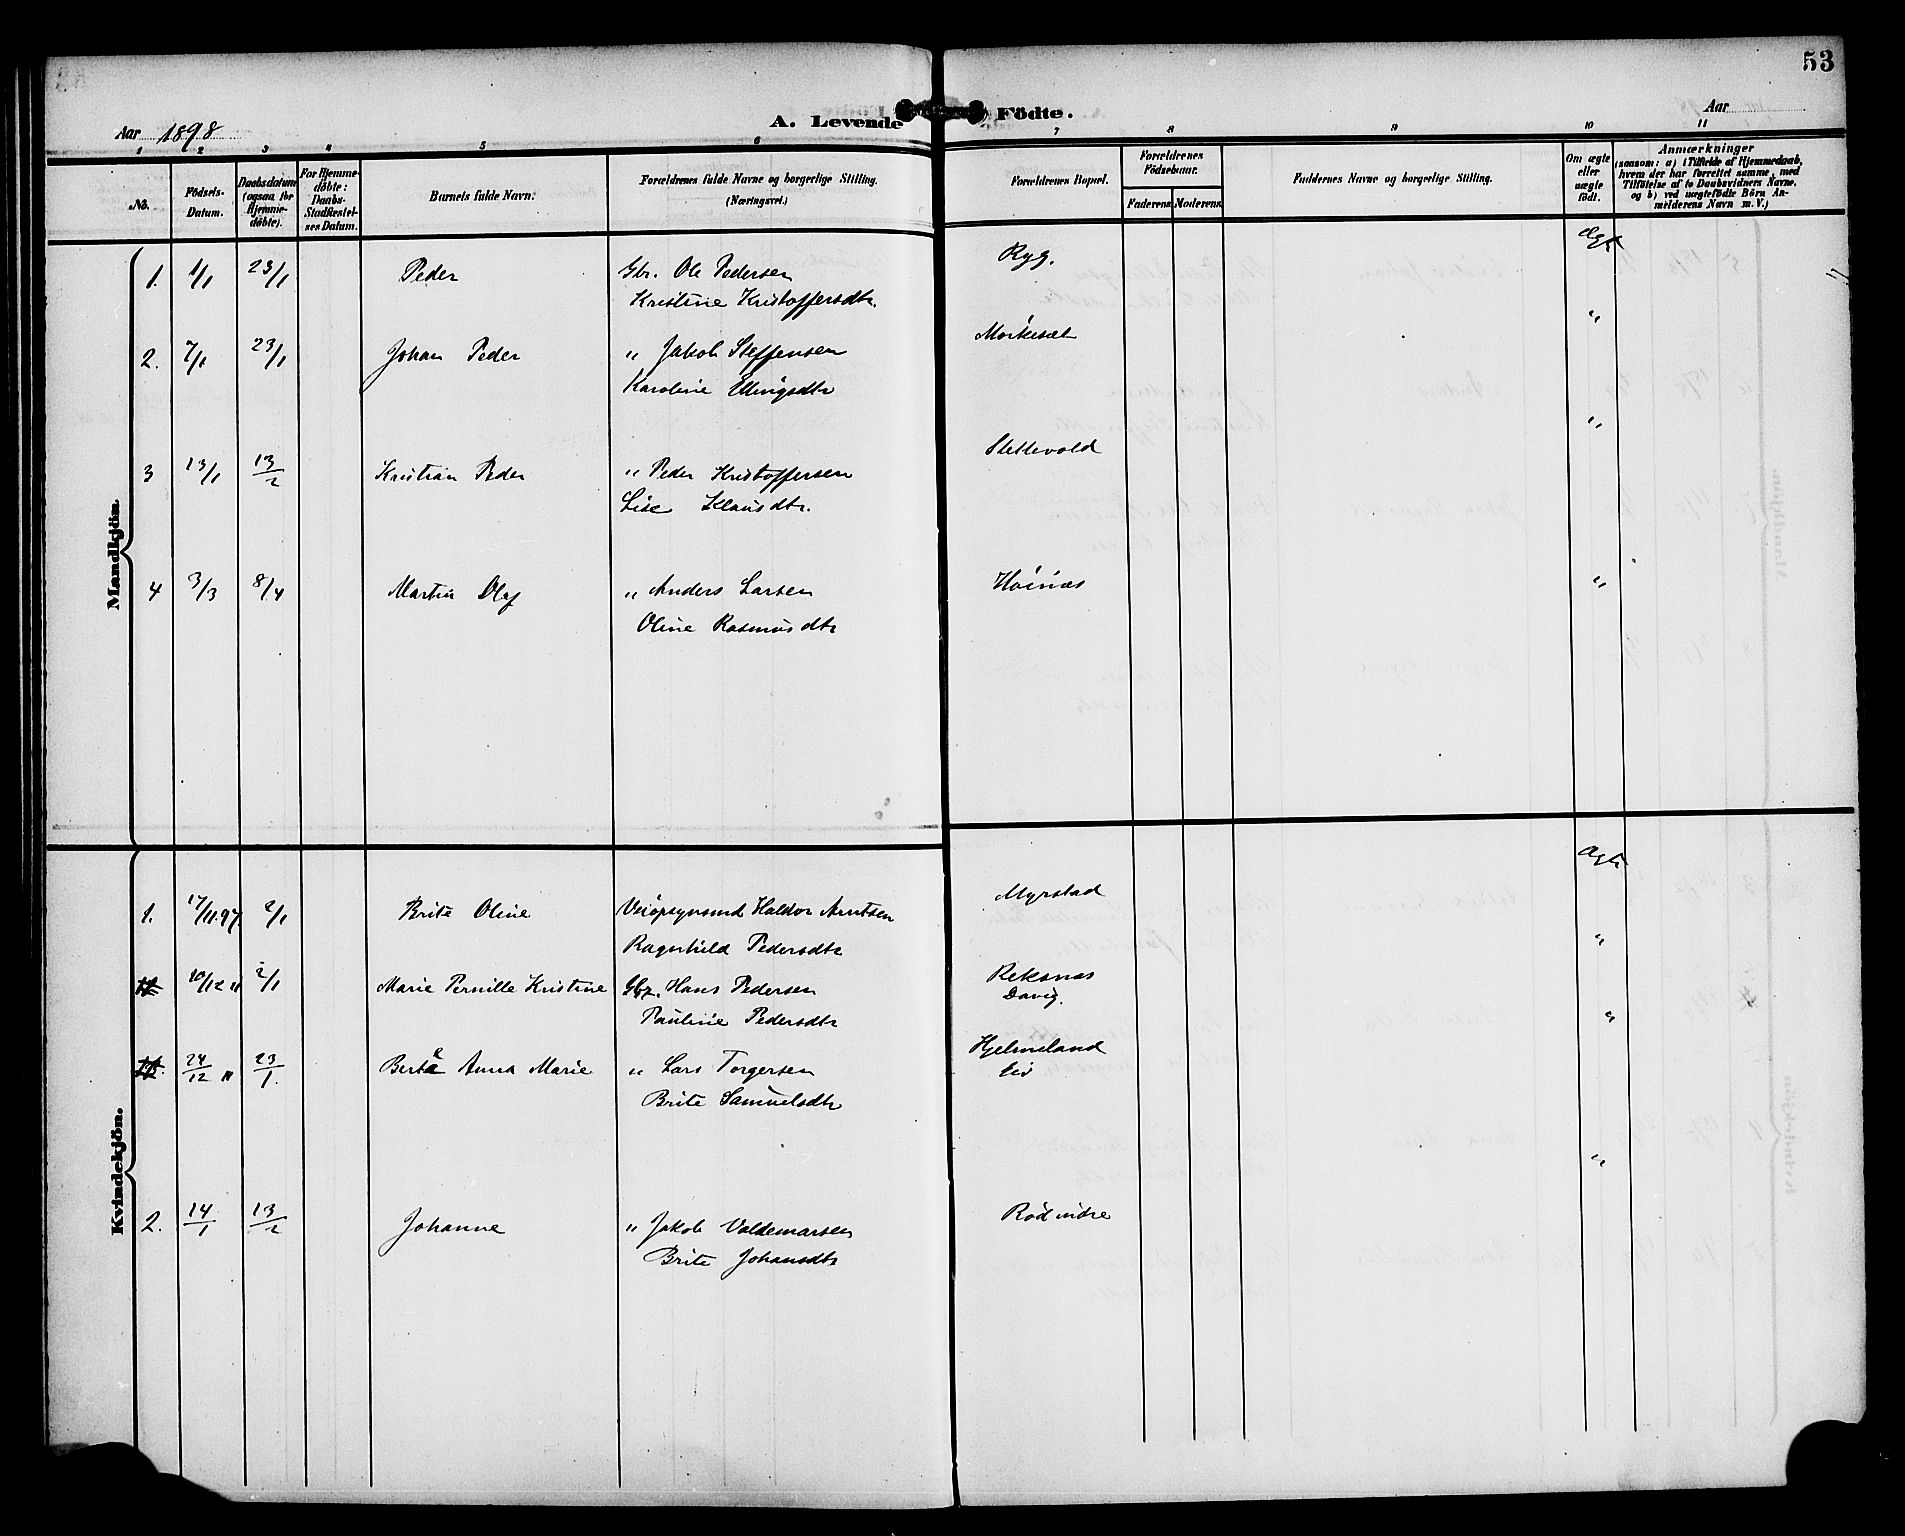 53
Aar 1898
A. Levende Födte.
Aar
1 2 3 4 5 6 7 8 9 10 11
No.
Födsels-Datum.
Daabsdatum (ogsaa for Hjemme-døbte).
For Hjemme-døbte: Daabs-Stadfæstel-ses Datum.
Barnets fulde Navn.
Forældrenes fulde Navne og borgerlige Stilling. (Næringsvei.)
Forældrenes Bopæl.
Forældrenes Födselsaar.
Faderens Moderens
Faddernes Navne og borgerlige Stilling.
Om ægte eller uægte født.
Anmærkninger (saasom: a) i Tilfælde af Hjemmedaab, hvem der har forrettet samme, med Tilføielse af to Daabsvidners Navne, og b) ved uægtefödte Börn Anmelderens Navn m. V.)
Mandkjön.
1. 1/1 23/1 Peder Gbr. Ole Pedersen Ryg. Ægte
Kristine Kristoffersdtr.
2. 7/1 23/1 Johan Peder " Jakob Steffensen Morkesæt "
Karoline Ellingsdtr
3 13/1 13/2 Kristian Peder " Peder Kristoffersen Stettevold "
Lise Klausdtr.
4 3/3 8/4 Martin Olaf " Anders Larsen Hoinæs "
Oline Rasmusdtr
Kvindekjön.
1. 17/11.97. 2/1 Brite Oline Veiopsynsmd Haldor Arntsen Myrstad Ægte
Ragnhild Pedersdtr
10/12 " 2/1 Marie Pernille Kristine Gbr. Hans Pedersen Reksnæs "
Pauline Pedersdtr Davig.
24/12 " 23/1. Berte Anna Marie " Lars Torgersen Hjelmeland "
Brite Samuelsdtr Eid
2. 14/1 13/2 Johanne " Jakob Valdemarsen Rød indre "
Brite Johansdtr